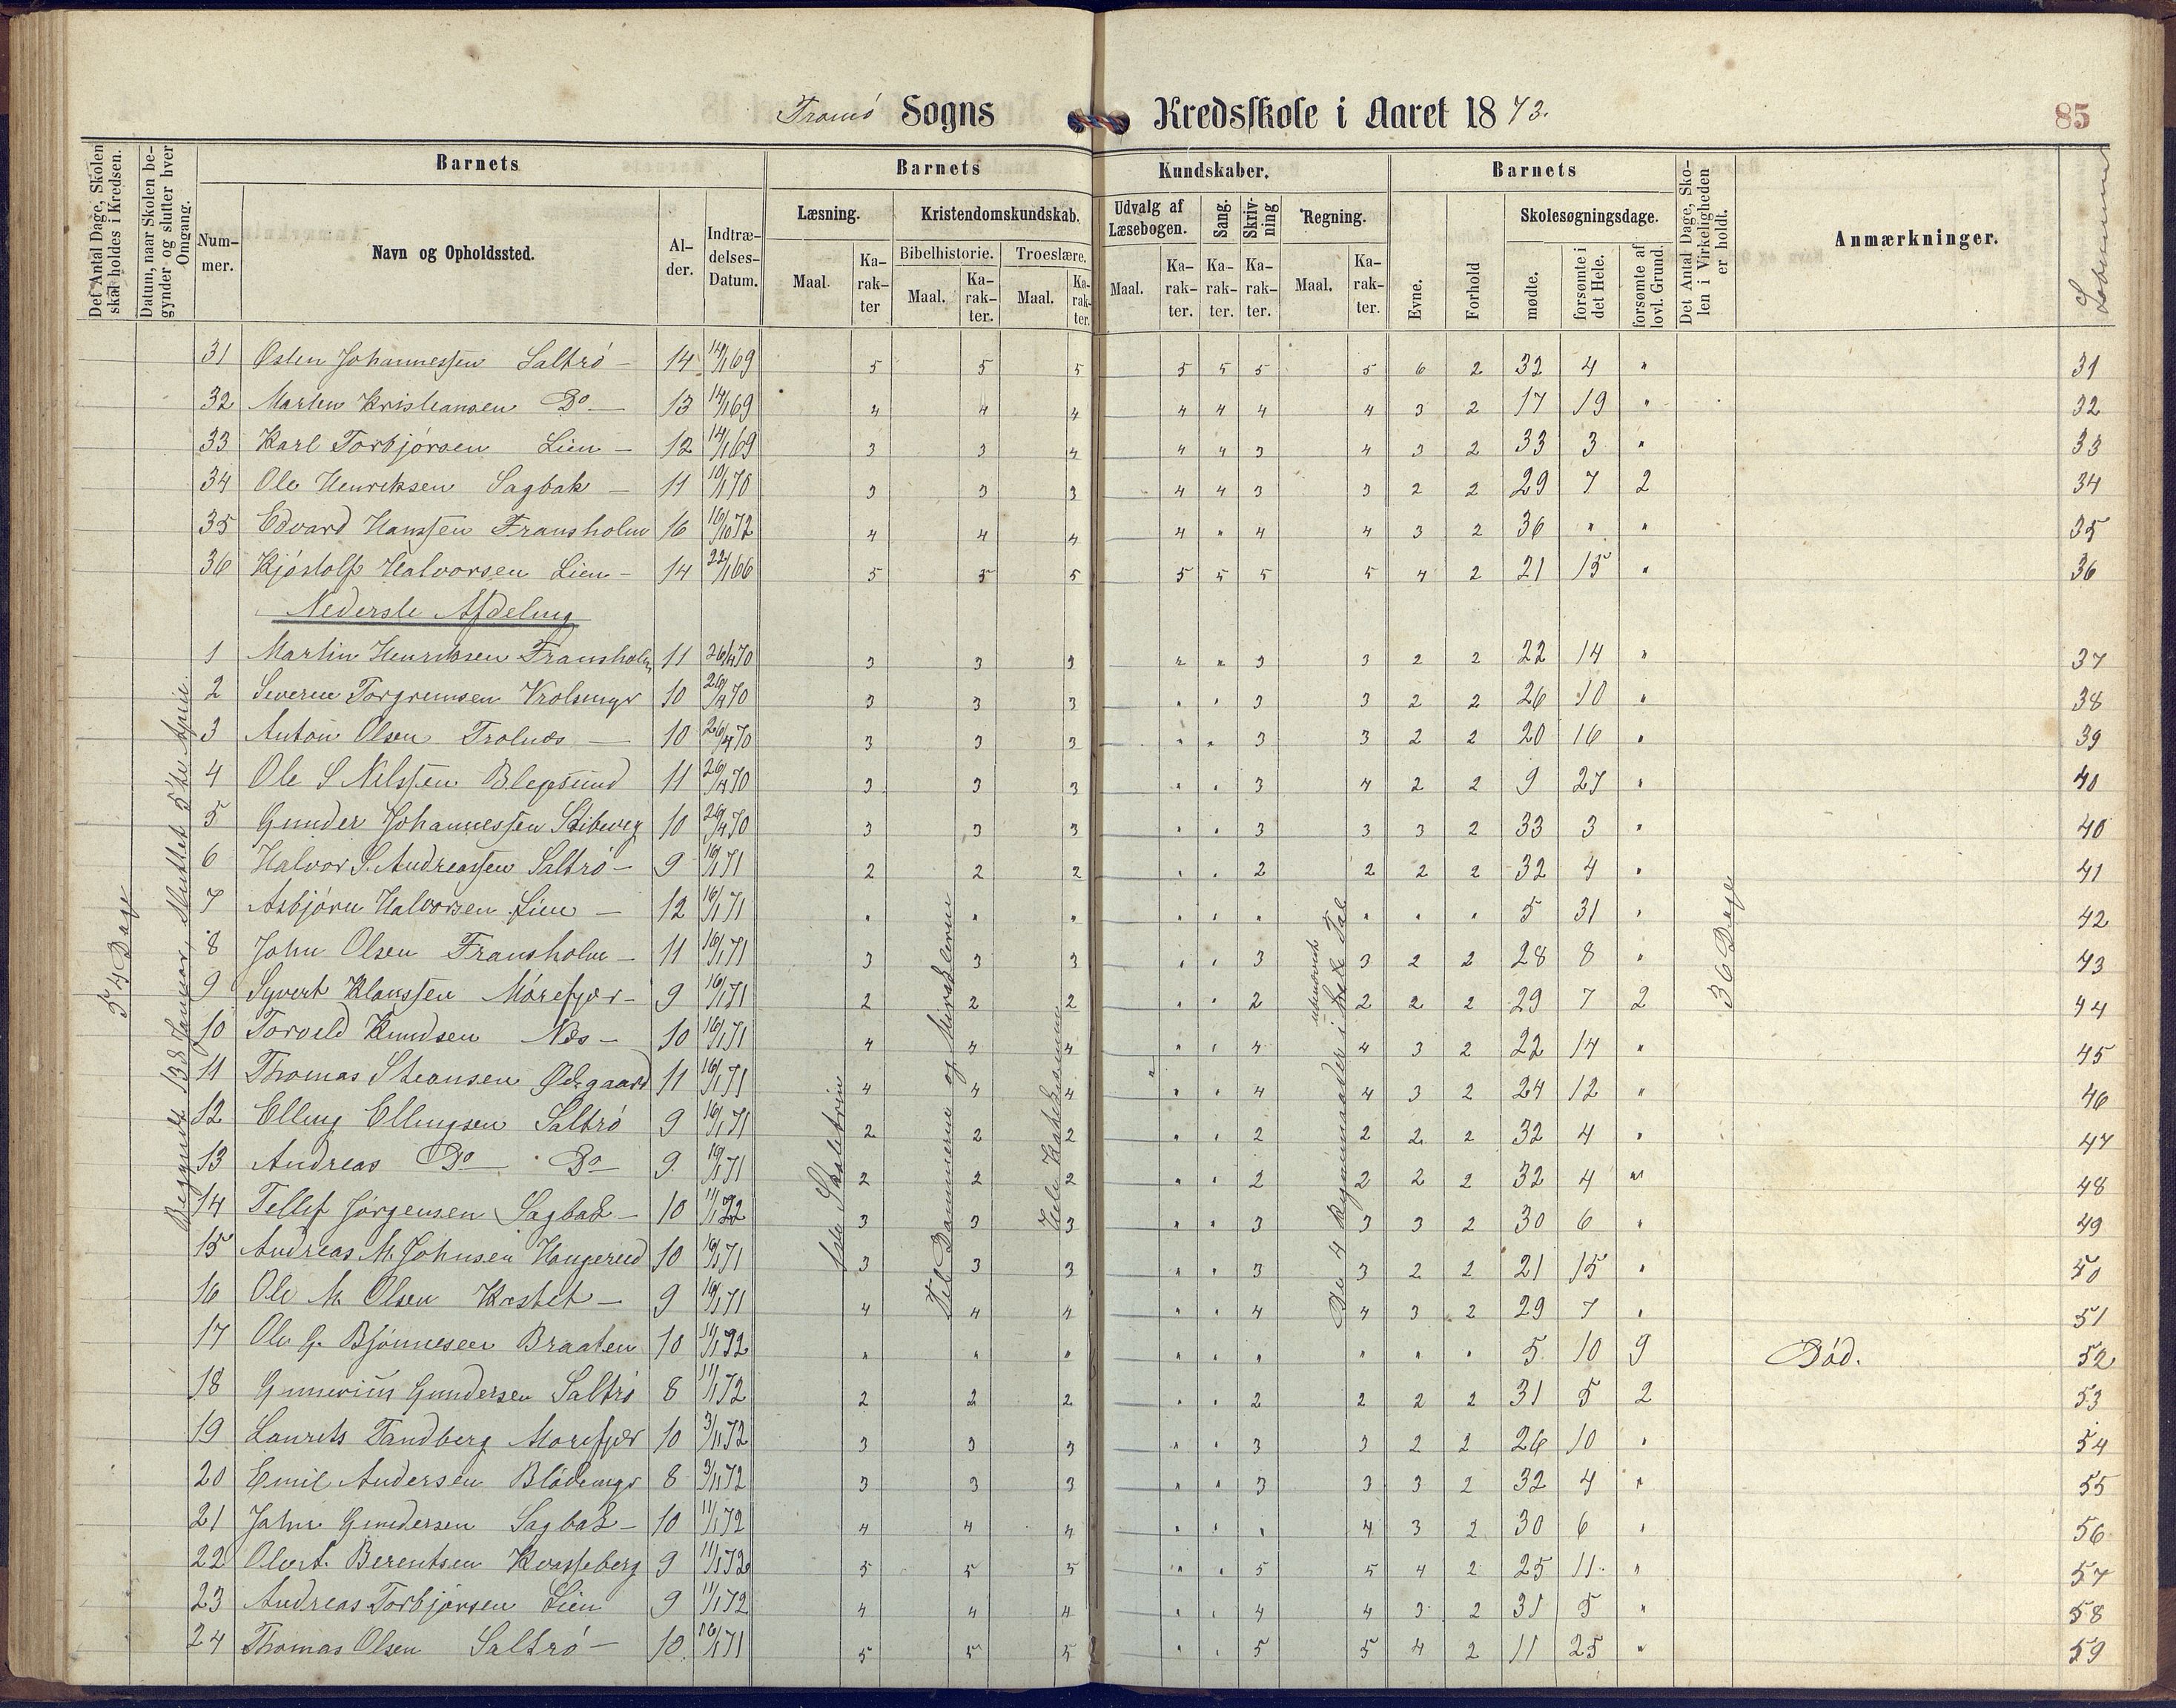 Tromö Sogns Kredsskole i Aaret 1873.
85
Det Antal Dage, Skolen skal holdes i Kredsen.
Datum, naar Skolen begynder og slutter hver Omgang.
Barnets
Nummer.
Navn og Opholdssted.
Alder.
Indtrædelses-Datum.
Barnets Kundskaber.
Læsning.
Maal.
Karakter
Kristendomskundskab.
Bibelhistorie.
Maal.
Karakter.
Troeslære.
Maal.
Karakter.
Udvalg af Læsebogen.
Maal.
Karakter.
Sang.
Karakter.
Skrivning
Karakter.
Regning.
Maal.
Karakter.
Barnets
Evne.
Forhold
Skolesøgningsdage.
mødte.
forsømte i det Hele.
forsømte af lovl. Grund.
Det Antal Dage, Skolen i Virkeligheden er holdt.
Anmærkninger.
Løbenummer
31 Østen Johannessen Saltrö – 14 14/1 69 5 5 5 5 5 5 5 6 2 32 4 " 31
32 Marten Kristiansen Do – 13 14/1 69 4 4 4 4 4 4 4 3 2 17 19 " 32
33 Karl Torbjörsen Lien – 12 14/1 69 3 3 4 4 4 3 4 3 2 33 3 " 33
34 Ole Henriksen Sagbak – 11 10/1 70 3 3 3 4 4 3 3 2 2 29 7 2 34
35 Edvard Hanssen Fransholm 16 16/10 72 4 4 4 4 " 4 4 3 2 36 " " 35
36 Kjöstolf Halvorsen Lien – 14 22/1 66 5 5 5 5 5 5 5 4 2 21 15 " 36
Nederste Afdeling
1 Martin Henriksen Fransholm 11 26/4 70 3 3 3 " " 3 3 2 2 22 14 " 37
2 Severin Torgrimsen 10 26/4 70 3 3 3 " " 3 3 2 2 26 10 " 38
3 Anton Olsen Trolnæs – 10 26/4 70 3 3 3 " " 3 3 2 2 20 16 " 39
4 Ole S Nilssen 11 26/4 70 3 3 3 " " 3 4 2 2 9 27 " 40
5 Gunder Johannessen Stibweg 10 26/4 70 3 3 3 " " 3 3 3 2 33 3 " 40
6 Halvor S. Andreassen Saltrö – 9 16/1 71 2 2 2 " " 2 2 2 2 32 4 " 41
7 Asbjörn Halvorsen Lien – 12 16/1 71 " " " " " " " " " 5 31 " 42
8 John Olsen Fransholm – 11 16/1 71 3 3 3 " " 3 3 2 2 28 8 " 43
9 Syvert Klaussen Mörefjær – 9 16/1 71 2 2 2 " " 2 2 2 2 29 7 2 44
10 Torveld Knudsen Næs – 10 16/1 71 4 4 4 " " 4 4 3 2 22 14 " 45
11 Thomas Steansen Ødegaard 11 16/1 71 4 4 4 " " 4 4 3 2 24 12 " 46
12 Elling Ellingsen Saltrö 9 16/1 71 2 2 2 " " 2 2 2 2 32 4 " 47
13 Andreas Do – Do – 9 16/1 71 2 2 2 " " 2 2 2 2 32 4 " 48
14 Tellef Jörgensen Sagbak – 10 11/1 72 3 3 3 " " 3 3 3 2 30 6 " 49
15 Andreas M. Johnsen Haugerud 10 16/1 71 3 3 3 " " 3 3 2 2 21 15 " 50
16 Ole M. Olsen Kastet – 9 16/1 71 4 4 4 " " 4 4 3 2 29 7 " 51
17 Ole G. Bjönnesen Braaten 10 11/1 72 " " " " " " " " " 5 10 9 Död. 52
18 Gunerius Gundersen Saltrö 8 11/1 72 2 2 2 " " 2 2 2 2 31 5 2 53
19 Laurits Tandberg Morefjær 10 3/11 72 3 3 3 " " 3 3 2 2 26 10 " 54
20 Emil Andersen Blödemyr 8 3/11 72 3 3 3 " " 3 3 3 2 32 4 " 55
21 John Gundersen Sagbak – 10 11/1 72 4 4 4 " " " 4 3 2 30 6 " 56
22 Olvert. Berentsen Kvasseberg 9 11/1 72 5 5 5 " " 5 5 4 2 25 11 " 57
23 Andreas Torbjörsen Lien 9 11/1 72 4 4 4 " " 4 4 3 2 31 5 " 58
24 Thomas Olsen Saltrö – 10 16/1 71 5 5 5 " " 5 5 4 2 11 25 " 59
54 Dage
Begyndte 13de Januar, sluttet 5te April.
Til Dommerne og
Hele Katekismus
De 4 Regningsmaader i hele Tal
36 Dage